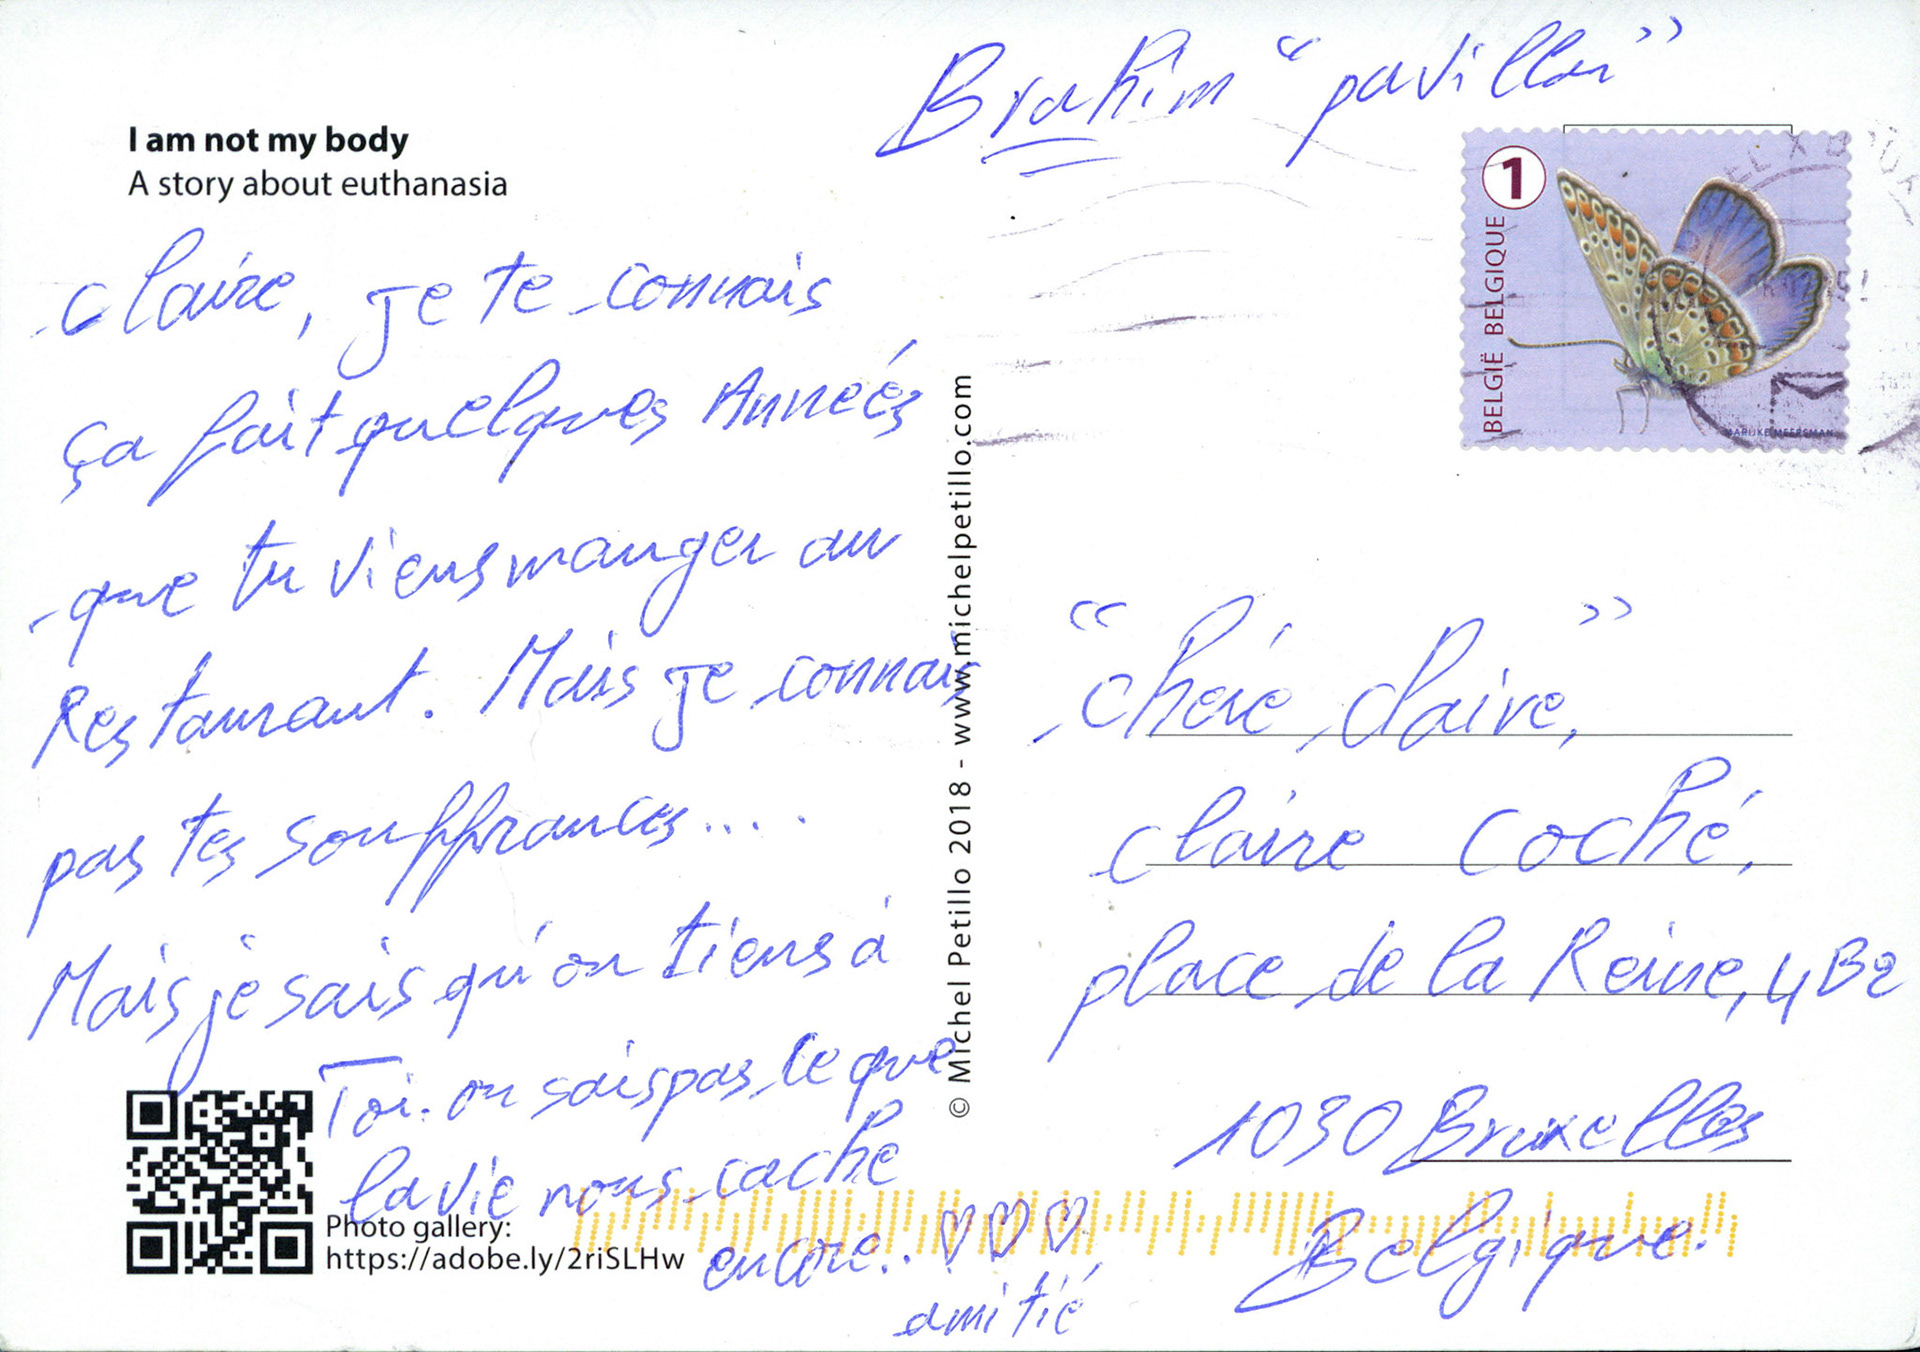 Brahim “pavillon”
I am not my body
A story about euthanasia
Claire, je te connais
ça fait quelques Années
que tu viens manger au
Restaurant. Mais je connais
pas tes souffrances....
Mais je sais qu'on tiens à
Toi. on sais pas ce que
la vie nous cache
encore.. ♡♡♡
amitié
Photo gallery:
https://adobe.ly/2riSLHw
© Michel Petillo 2018 - www.michelpetillo.com
1
BELGIË BELGIQUE
MARIJKE MEERSMAN
“chéré claire,”
claire coché,
place de la Reine, 4 B2
1030 Bruxelles
Belgique.